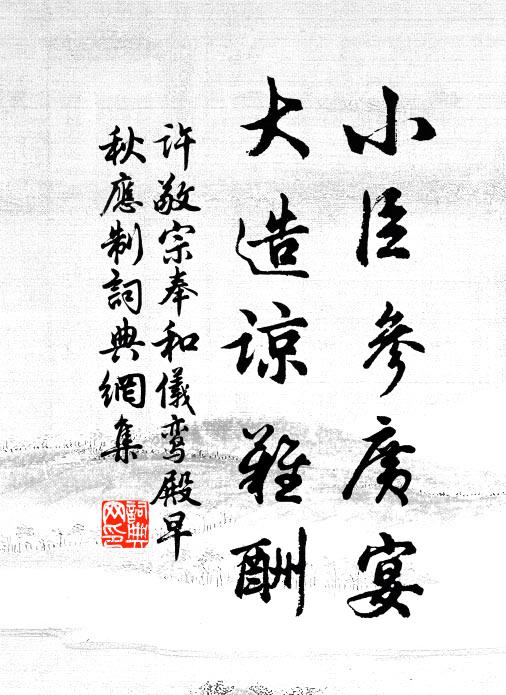 小臣參廣宴
大造諒難酬
許敬宗奉和儀鸞殿早
秋應制詞典網集
詞典
网印